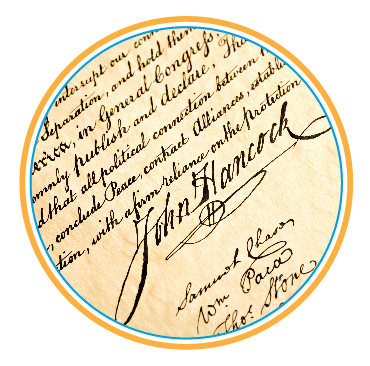 interrupt our conn
Separation, and hold them
erica, in General Congress,
omnly publish and declare, Tha
d that all political connection between th
, conclude Peace, contract Alliances, establis
tion, with a firm reliance on the protection
John Hancock
Samuel Chase
Wm. Paca
Thos. Stone